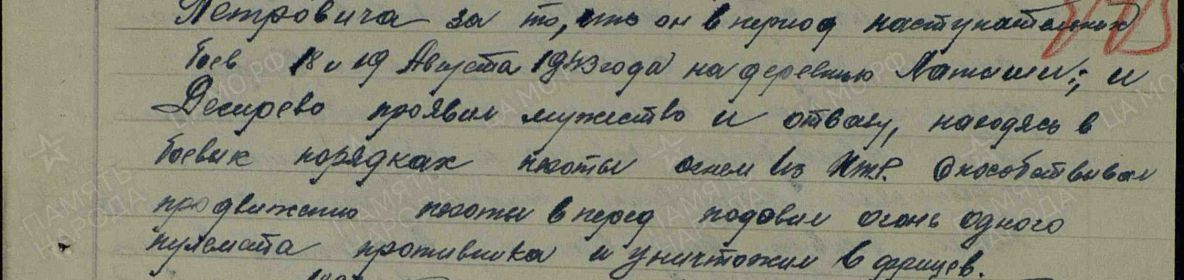 Петровича за то, что он в период наступательных
боев 18 и 19 Августа 1943 года на деревню и
проявил мужество и отвагу, находясь в
боевых порядках пехоты огнем из Способствовал
продвижению пехоты вперед подавил огонь одного
пулемета противника и уничтожил 6 фрицев.
ПАМЯТЬ НАРОДА
ЦАМО.РФ